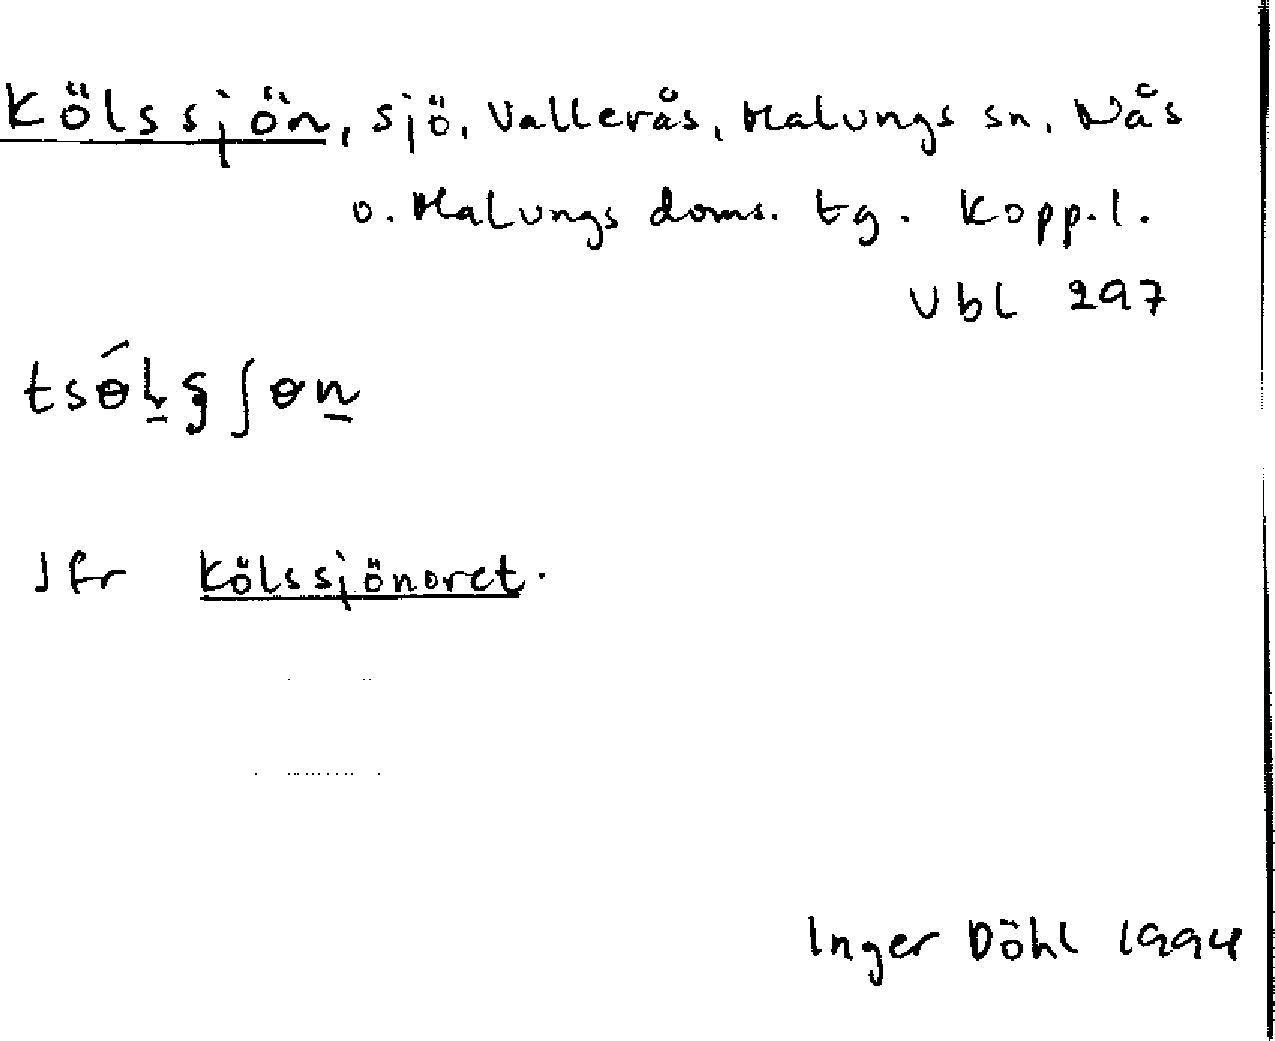 Kölssjön, sjö, Vallerås, Malungs sn, Nås
o. Malungs doms. tg. Kopp.l.
Vbl 297
Jfr Kölssjönoret.
Inger Döhl 1994